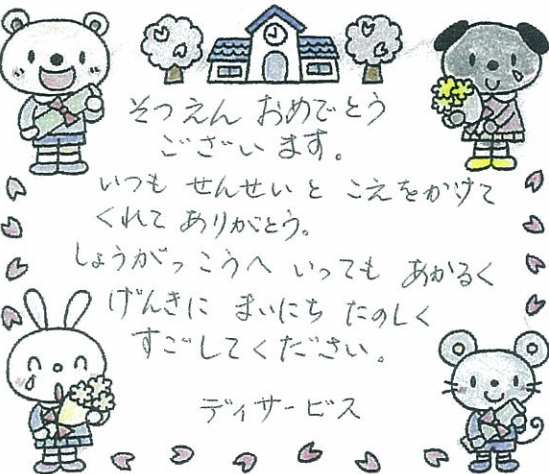 そつえん おめでとう
ございます。
いつも せんせい と こえをかけて
くれて ありがとう。
しょうがっこうへ いっても あかるく
げんきに まいにち たのしく
すごしてください。
デイサービス